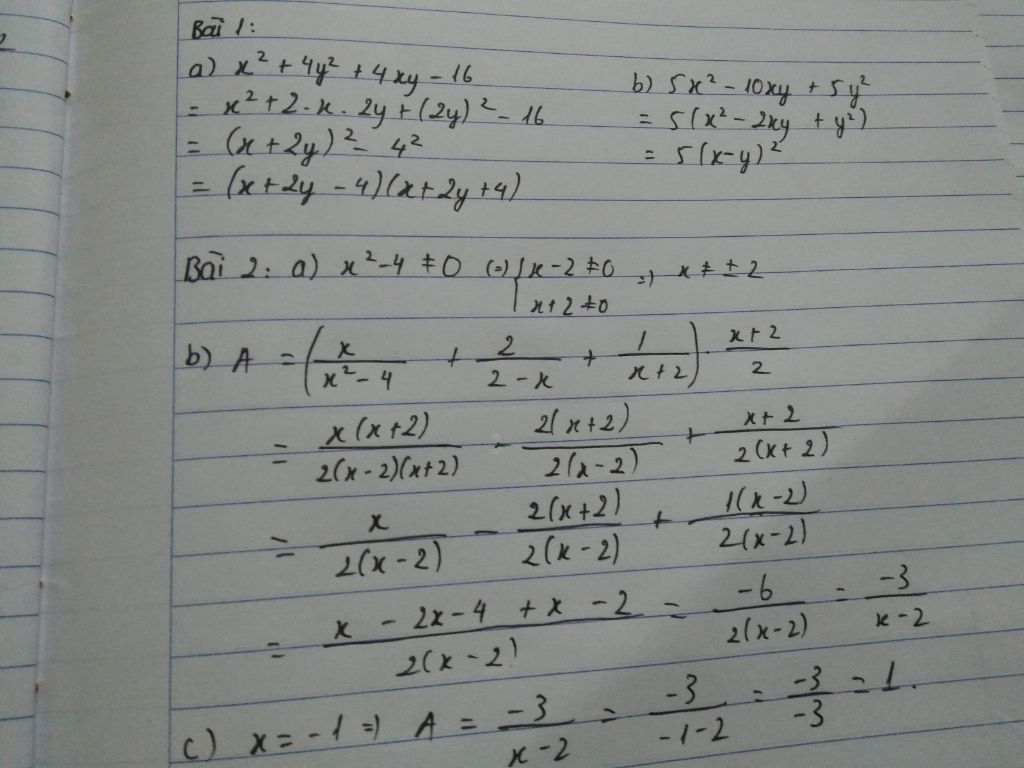 Bài 1:
a) x² + 4y² + 4xy - 16
= x² + 2.x.2y + (2y)² - 16
= (x + 2y)² - 4²
= (x + 2y - 4)(x + 2y + 4)
b) 5x² - 10xy + 5y²
= 5(x² - 2xy + y²)
= 5(x-y)²
Bài 2: a) x² - 4 ≠ 0 (=) { x - 2 ≠ 0 =) x ≠ ± 2
x + 2 ≠ 0
b) A = (x/(x² - 4) + 2/(2 - x) + 1/(x + 2)) . (x + 2)/2
= x(x+2)/(2(x-2)(x+2)) - 2(x+2)/(2(x-2)) + (x+2)/(2(x+2))
= x/(2(x-2)) - 2(x+2)/(2(x-2)) + 1(x-2)/(2(x-2))
= (x - 2x - 4 + x - 2)/(2(x-2)) = -6/(2(x-2)) = -3/(x-2)
c) x = -1 =) A = -3/(x-2) = -3/(-1-2) = -3/-3 = 1.